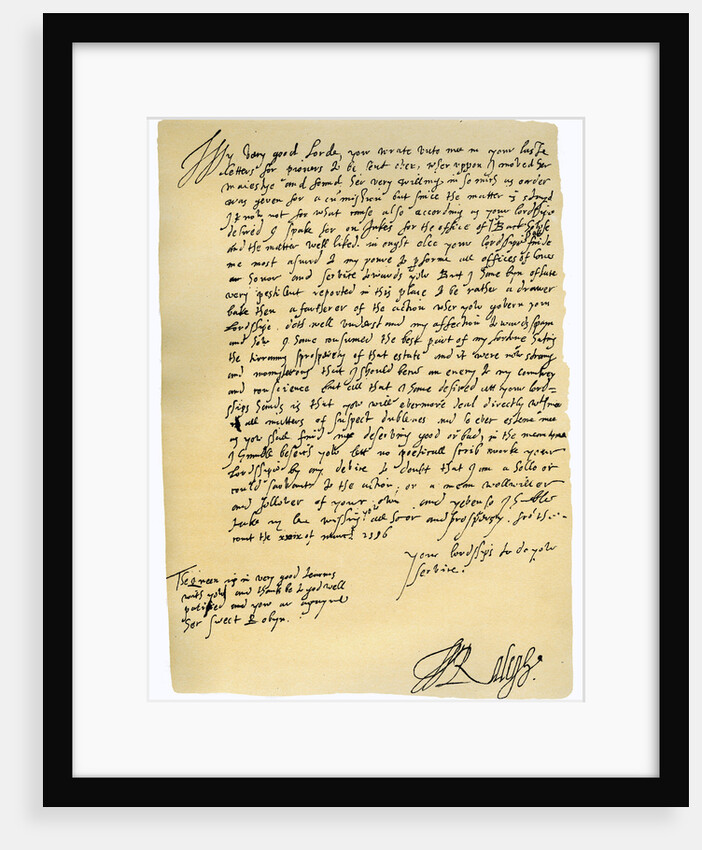 My very good Lorde, yow wrate unto me in your laste
letters for pioners to be sent over, wheruppon I moved her
maiestye and found her very willing in so mich as order
was geven for a cumishion but since the matter is
I know not for what cause also according as your lordships
desired I spake for on Jukes for the office of
and the matter well liked. in ought else your lordships
me most asured to my poure to performe all offices of love
honor and service towards yow But I have byn of late
very pestilent reported in this place to be rather a drawer
bake then a fartherer of the action wher yow govern your
Lordshipe doth well understand my affection towards spayn
and how I have consumed the best part of my fortune hating
the tirranus sprosperety of that estate and it were now strang
and monsterous that I should becum an enemy to my countrey
and conscience but all that I have desired att your lord=
ships hands is that yow will evermore deal directly with mee
all matters of suspect dublenes and so ever esteme mee
as yow shall find my deserving good or bad, in the mean tyme
I humble beseich yow lett no poeticall scrib worke your
Lordship by any devise to doubt that I am a hollo or
could sarvant to the action, or a mean wellwiller
and follower of your own and yeven so I humble
take my leve wishing yow all honor and prosperety. from the
court the of march 1586
Your lordships to do yow
service.
The Queen is in very good tearms
with yow and thanks be to god well
pacified and yow ar agayne
her sweet Robyn.
W Ralegh.